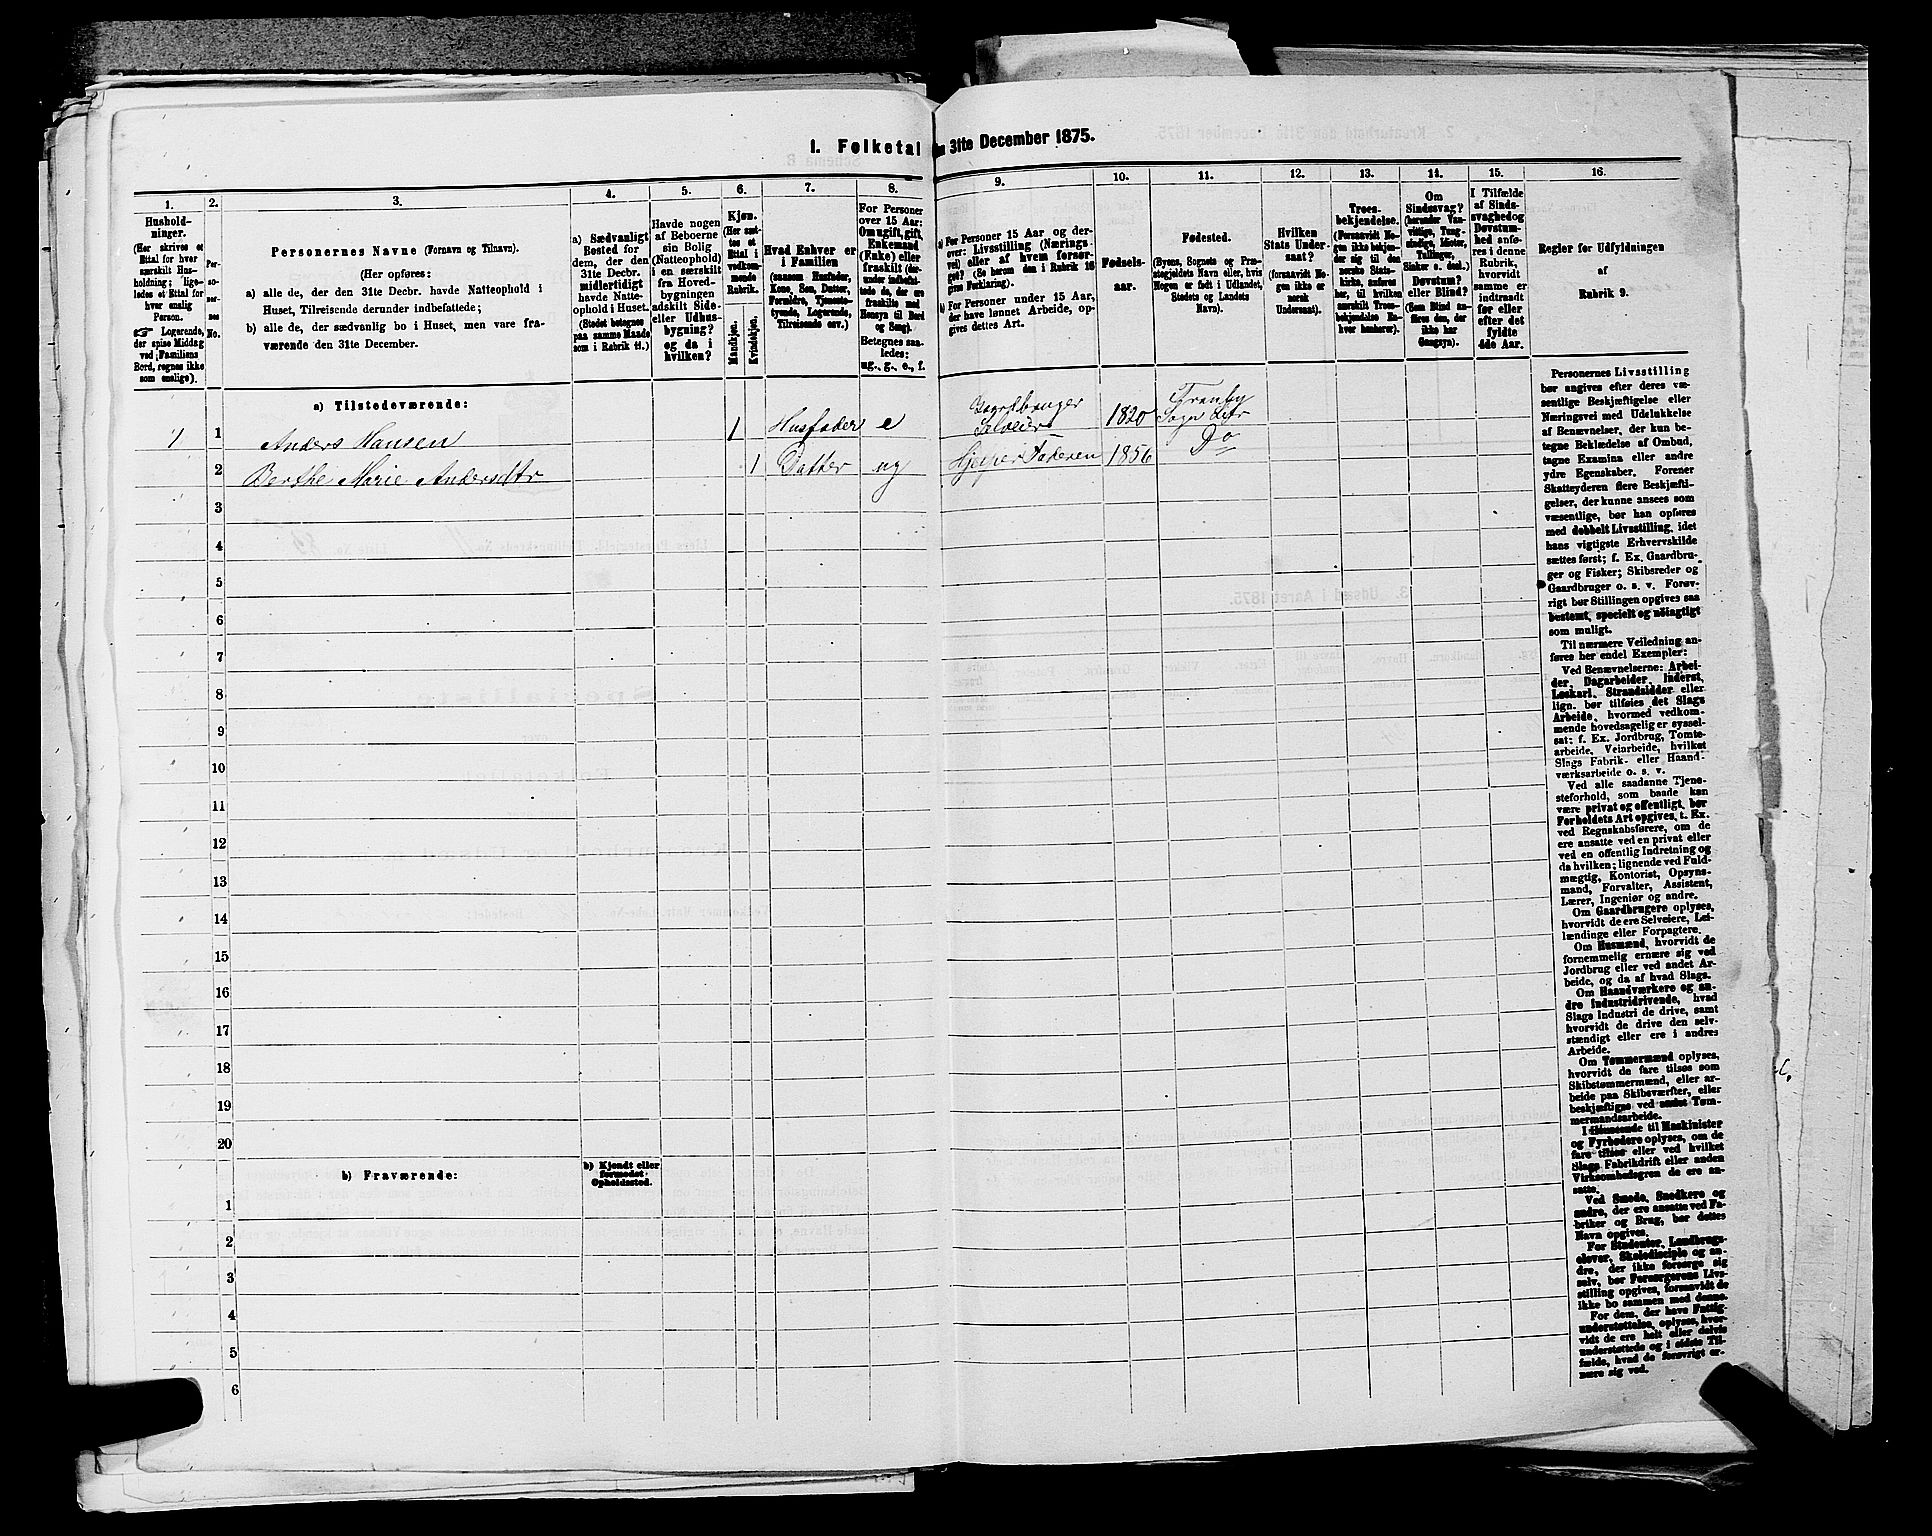 I. Folketal
den 31te December 1875.
1.
Hushold-
ninger.
(Her skrives et
Ettal for hver
særskilt Hus-
holdning; lige-
ledes et Ettal for
hver enslig
Person.
Logerende,
der spise Middag
ved Familiens
Bord, regnes ikke
som enslige).
2.
Per-
so-
ner-
nes
No.
3.
Personernes Navne (Fornavn og Tilnavn).
(Her opføres:
a) alle de, der den 31te Decbr. havde Natteophold i
Huset, Tilreisende derunder indbefattede;
b) alle de, der sædvanlig bo i Huset, men vare fra-
værende den 31te December.
4.
a) Sædvanligt
Bosted for
dem, der den
31te Decbr.
midlertidigt
havde Natte-
ophold i Huset.
(Stedet betegnes
paa samme Maade
som i Rubrik 11.)
5.
Havde nogen
af Beboerne
sin Bolig
(Natteophold)
i en særskilt
fra Hoved-
bygningen
adskilt Side-
eller Udhus-
bygning?
og da i
hvilken?
6.
Kjøn.
(Her sæt-
tes et
Ettal i
vedkom-
mende
Rubrik.
Mandkjøn.
Kvindekjøn.
7.
Hvad Enhver er
i Familien
(saasom Husfader,
Kone, Søn, Datter,
Forældre, Tjeneste-
tyende, Logerende,
Tilreisende osv.)
8.
For Personer
over 15 Aar:
Om ugift, gift,
Enkemand
(Enke) eller
fraskilt (der-
under indbefat-
tede de, der ere
fraskilte med
Hensyn til Bord
og Seng).
Betegnes saa-
ledes:
ug., g., e., f.
9.
a) For Personer 15 Aar og der-
over: Livsstilling (Nærings-
vei) eller af hvem forsør-
get? (Se herom den i Rubrik 16
givne Forklaring).
b) For Personer under 15 Aar,
der have lønnet Arbeide, op-
gives dettes Art.
10.
Fødsels-
aar.
11.
Fødested.
(Byens, Sognets og Præ-
stegjeldets Navn eller, hvis
Nogen er født i Udlandet,
Stedets og Landets
Navn).
12.
Hvilken
Stats Under-
saat?
(forsaavidt No-
gen ikke er
norsk
Undersaat).
13.
Troes-
bekjendelse.
(Forsaavidt No-
gen ikke bekjen-
der sig til den
norske Stats-
kirke, anføres
her, til hvilken
særskilt Troes-
bekjendelse En-
hver henhører).
14.
Om
Sindssvag?
(herunder Van-
vittige, Tung-
sindige, Idioter,
Tullinger,
Sinker o. desl.)
Døvstum?
eller Blind?
(Som Blind an-
føres den, der
ikke har
Gangsyn).
15.
I Tilfælde
af Sinds-
svaghed og
Døvstum-
hed anfø-
res i denne
Rubrik,
hvorvidt
samme er
indtraadt
før eller
efter det
fyldte
4de Aar.
16.
Regler for Udfyldningen
af
Rubrik 9.
a) Tilstedeværende:
1 1 Anders Hansen 1 Husfader e Gaardbruger Selveier 1820 Tranby Sogn Lier
2 Berthe Marie Andersdtr 1 Datter ug Hjelper Faderen 1856 Do
3
4
5
6
7
8
9
10
11
12
13
14
15
16
17
18
19
20
b) Fraværende:
b) Kjendt eller
formodet
Opholdssted.
1
2
3
4
5
6
Personernes Livsstilling
bør angives efter deres væ-
sentlige Beskjæftigelse eller
Næringsvei med Udelukkelse
af Benævnelser, der kun be-
tegne Beklædelse af Ombud,
tagne Examina eller andre
ydre Egenskaber. Forener
Skatteyderen flere Beskjæfti-
gelser, der kunne ansees som
væsentlige, bør han opføres
med dobbelt Livsstilling, idet
hans vigtigste Erhvervskilde
sættes først; f. Ex. Gaardbru-
ger og Fisker; Skibsreder og
Gaardbruger o. s. v. Forøv-
rigt bør Stillingen opgives saa
bestemt, specielt og nöiagtigt
som muligt.
Til nærmere Veiledning an-
føres her endel Exempler:
Ved Benævnelserne: Arbei-
der, Dagarbeider, Inderst,
Løskarl, Strandsidder eller
lign. bør tilføies det Slags
Arbeide, hvormed vedkom-
mende hovedsagelig er syssel-
sat; f. Ex. Jordbrug, Tomte-
arbeide, Veiarbeide, hvilket
Slags Fabrik- eller Haand-
værksarbeide o. s. v.
Ved alle saadanne Tjene-
steforhold, som baade kan
være privat og offentligt, bør
Forholdets Art opgives, t. Ex.
ved Regnskabsførere, om de
ere ansatte ved en privat eller
ved en offentlig Indretning og
da hvilken; lignende ved Fuld-
mægtig, Kontorist, Opsyns-
mand, Forvalter, Assistent,
Lærer, Ingeniør og andre.
Om Gaardbrugere oplyses,
hvorvidt de ere Selveiere, Lei-
lændinge eller Forpagtere.
Om Husmænd, hvorvidt de
fornemmelig ernære sig ved
Jordbrug eller ved andet Ar-
beide, og da af hvad Slags.
Om Haandværkere og an-
dre Industridrivende, hvad
Slags Industri de drive, samt
hvorvidt de drive den selv-
stændigt eller ere i andres
Arbeide.
Om Tømmermænd oplyses,
hvorvidt de fare tilsøs som
Skibstømmermænd, eller ar-
beide paa Skibsværfter, eller
beskjæftiges ved andet Tøm-
mermandsarbeide.
I Henseende til Maskinister
og Fyrbødere oplyses, om de
fare tilsøs eller ved hvilket
Slags Fabrikdrift eller anden
Virksombedsgren de ere an-
satte.
Ved Smede, Snedkere og
andre, der ere ansatte ved Fa-
briker og Brug, bør dettes
Navn opgives.
For Studenter, Landbrugs-
elever, Skoledisciple og an-
dre, der ikke forsørge sig
selv, bør Forsørgerens Livs-
stilling opgives, forsaavidt de
ikke bo sammen med denne.
For dem, der have Fattig-
understøttelse, oplyses, hvor-
vidt de ere helt eller delvis
understøttede og i sidste Til-
fælde, hvad de forøvrigt er-
nære sig ved.